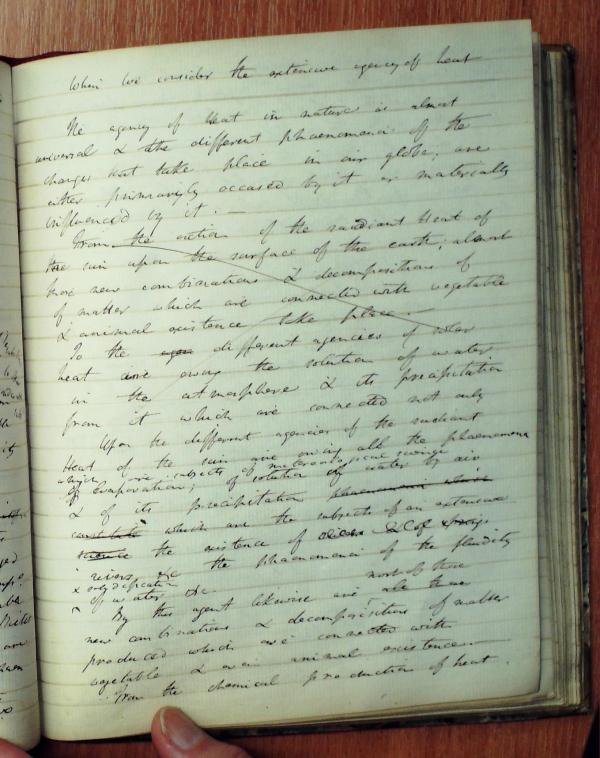 When we consider the extensive agency of heat
The agency of Heat in nature is almost
universal & the different phaenomena of the
changes that take place in our globe, are
either primarily occased by it or materially
influenced by it. —
From the action of the radiant Heat of
the sun upon the surface of the earth; almost
new combinations & decompositions of
of matter which are connected with vegetable
& animal existence take place. —
To the different agencies of solar
heat are owing the solution of water
in the atmosphere & its precipitation
from it which are connected not only
Upon the different agencies of the radiant
Heat of the sun are owing all the phaenomena
which are subjects of meteorological science
of evaporation; of solution of water by air
& of its precipitation phaenomena whose
which are the subjects of an extensive
science the existence of & of springs
rivers &c the phaenomena of the fluidity
of water &c.
most of those
By this agent likewise are all those
new combinations & decompositions of matter
produced which are connected with
vegetable & even animal existence. —
From the chemical production of heat.